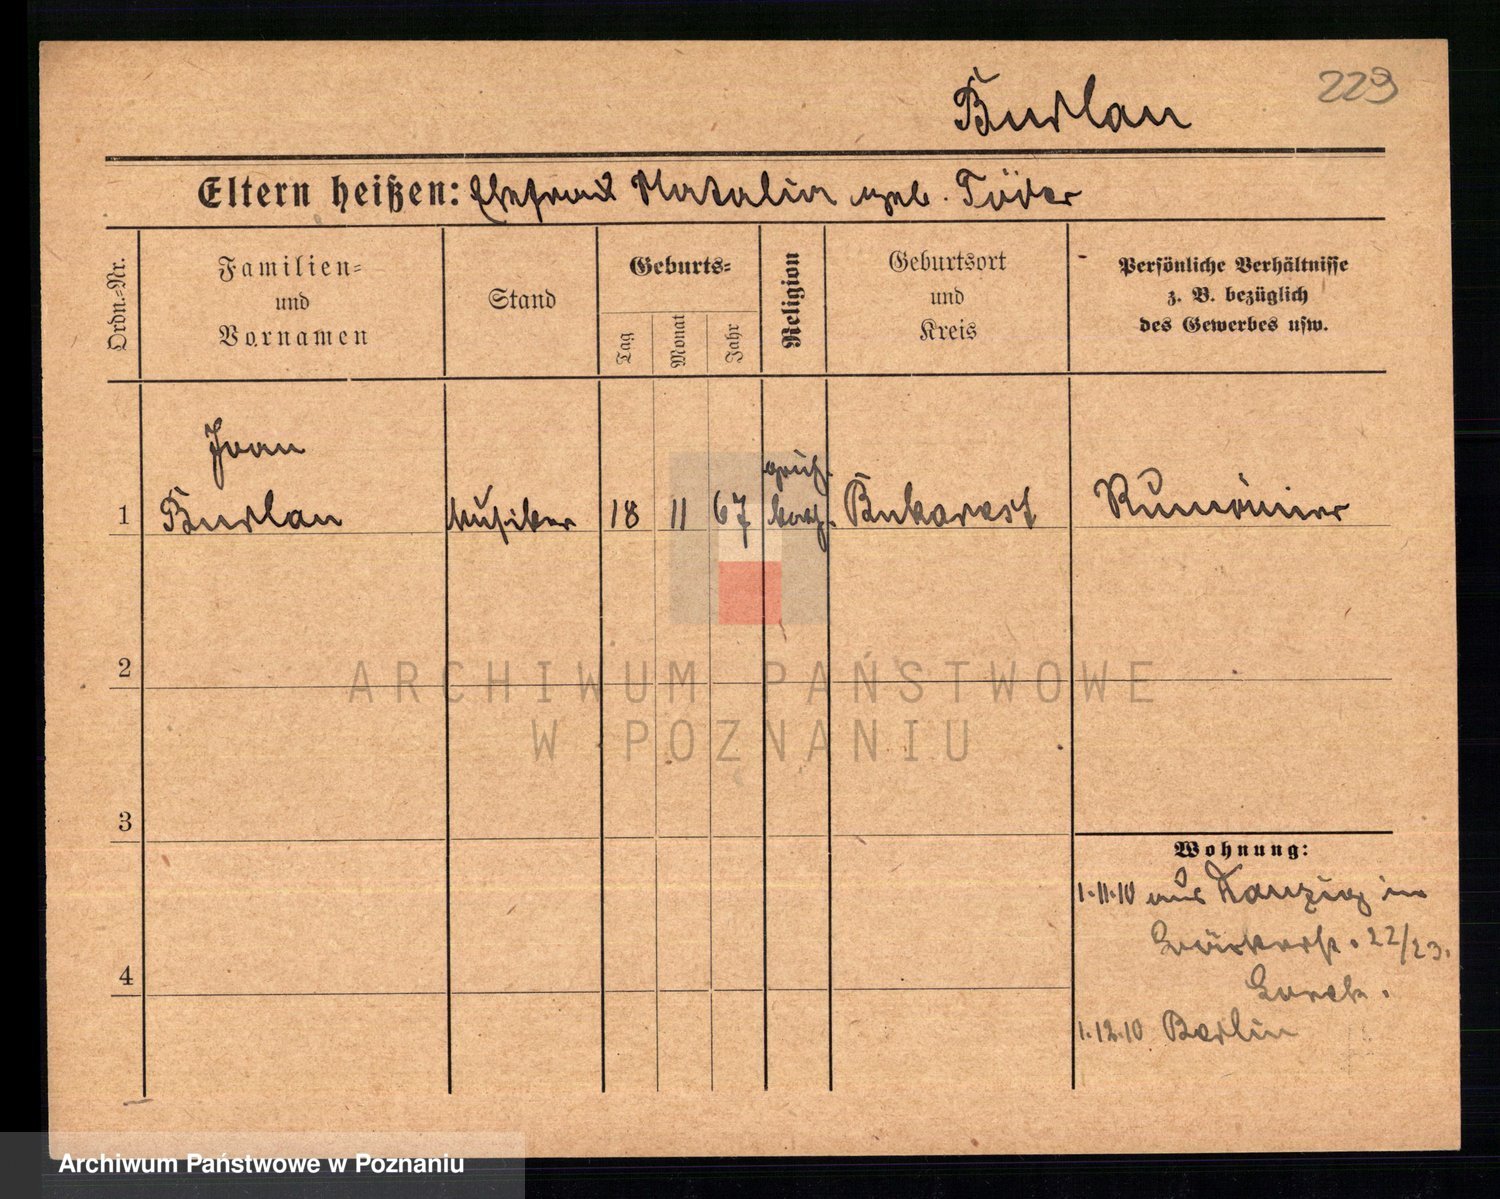 229
Burlan
Eltern heißen: Ehefrau Natalia geb. Töder
Ordn.-Nr.
Familien-
und
Vornamen
Stand
Geburts-
Tag
Monat
Jahr
Religion
Geburtsort
und
Kreis
Persönliche Verhältnisse
z. B. bezüglich
des Gewerbes usw.
Joan
griech.
1 Burlan Musiker 18 11 67 kath. Bukarest Rumänier
2
ARCHIWUM PAŃSTWOWE
W POZNANIU
3
Wohnung:
1.11.10 aus Danzig in
22/23.
4
1.12.10 Berlin
Archiwum Państwowe w Poznaniu